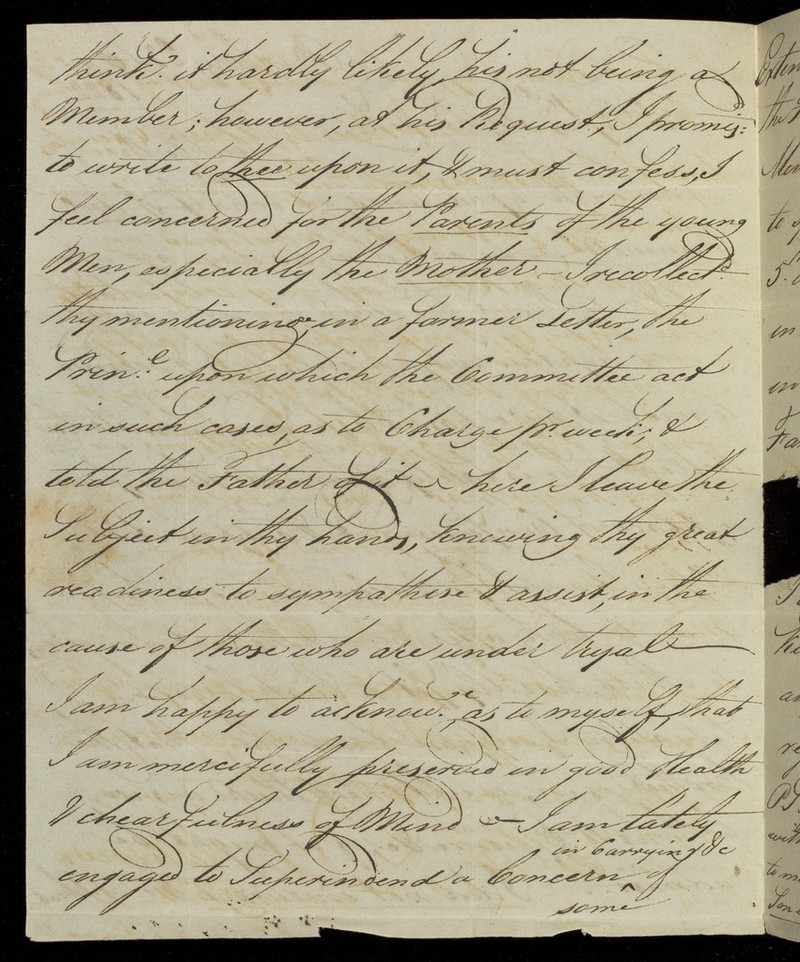 think.t it hardly likely, his not being a
Member; however, at his Request, I promis:
to write to thee upon it, & must confess, I
feel concerned for the Parents of the young
Men, especially the Mother - I recollect.d
thy mentioning, in a former Letter, the
Prin.e upon which the Committee act
in such cases, as to Charge pr. week; &
told the Father of it - here I leave the
Subject in thy hands, knowing thy great
readiness to sympathise & assist, in the
cause of those who are under tryal
I am happy to acknow.e as to myself, that
I am mercifully preserved in good Health
& chearfulness of Mind - I am lately
in Carrying &c
engaged to Superindend a Concern of
some
Exten
the
Mem
to
5.
in
in
Fa
I
an
re
P.S
with
to m
Son